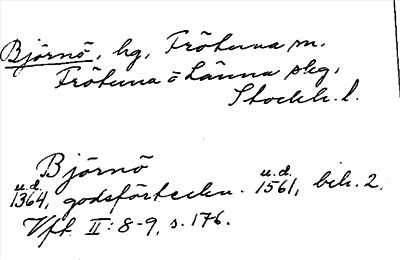 Björnö, hg, Frötuna sn.
Frötuna o Länna skg,
Stockh. l.
Björnö
u.d. 1364, godsförteckn. u.d. 1561, bih. 2.
Vft II: 8-9, s. 176.